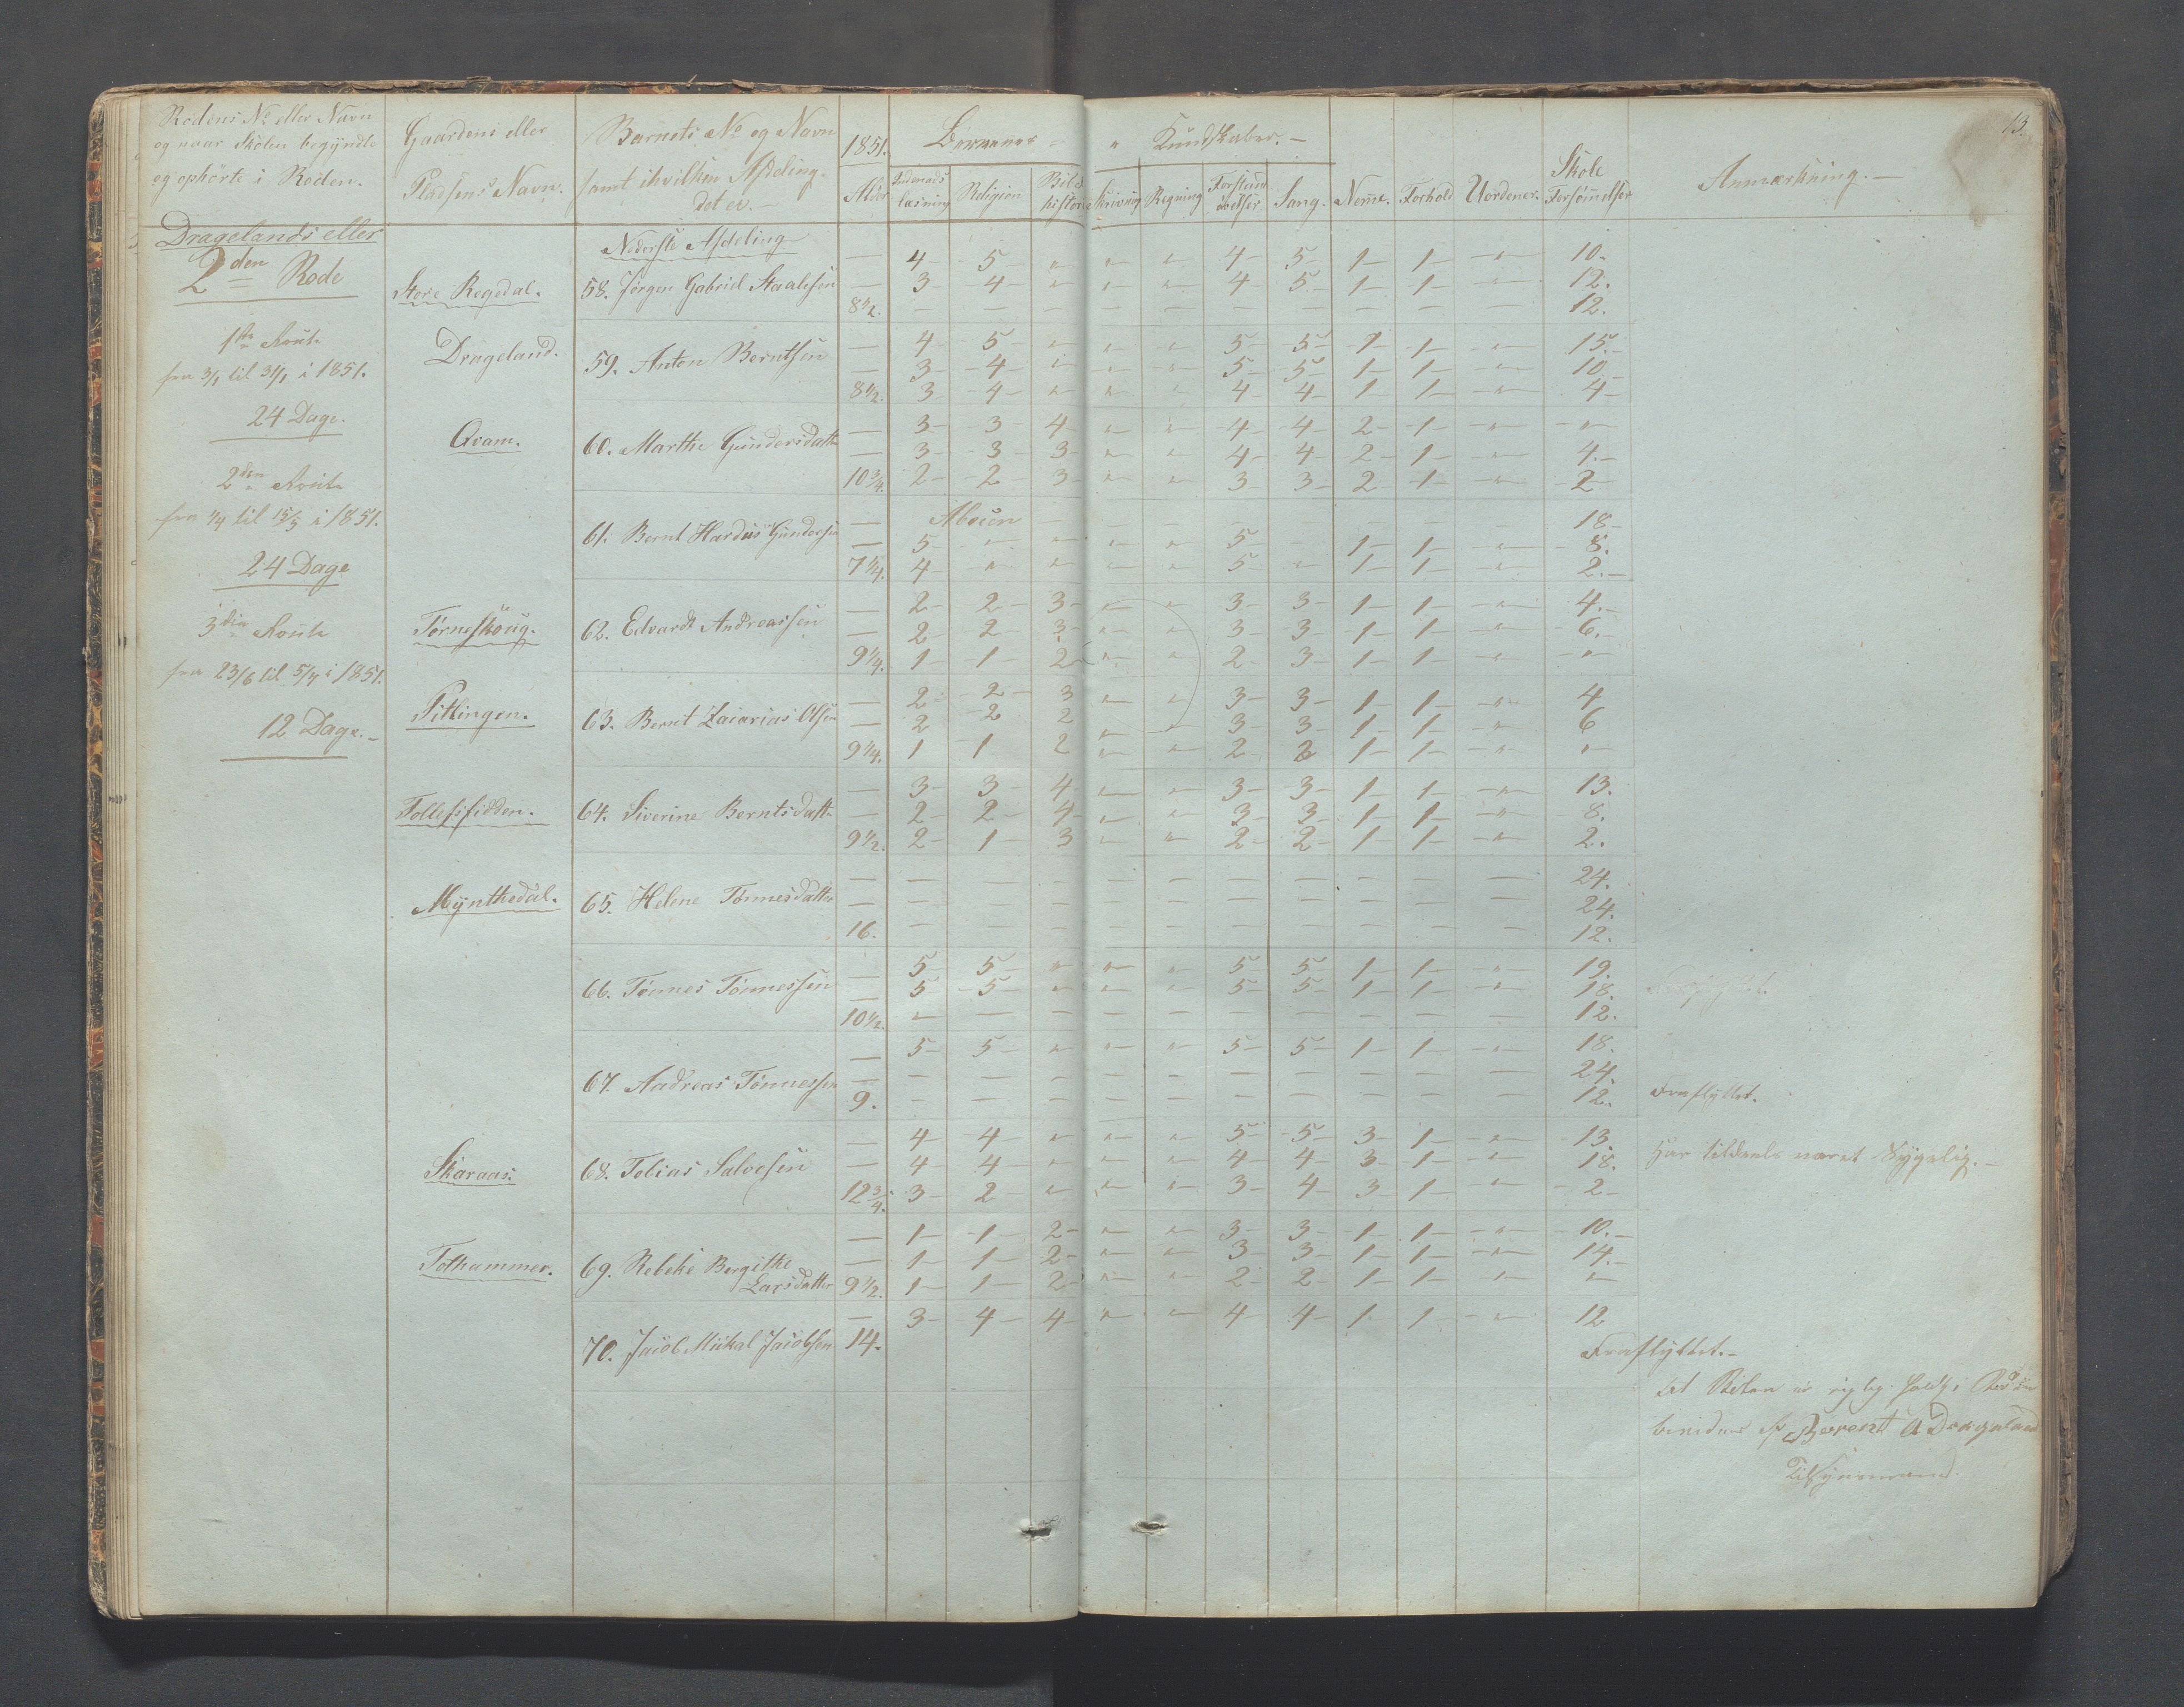 13.
Rodens No eller Navn og naar Skolen begyndte og ophörte i Roden. Gaardens eller Pladsens Navn. Barnets No og Navn samt ihvilken Afdeling det er. 1851. Alder Börnenes Kundskaber. Indenads læsning Religion Bibl. histori Skrivning Regning Forstands övelser Sang. Nemme. Forhold Uordener. Skole Forsömmelser Anmærkning.
Dragelands eller
2den Rode
1ste Route
fra 3/1 til 31/1 i 1851.
24 Dage.
2den Route
fra 1/4 til 15/5 i 1851.
24 Dage
3die Route
fra 23/6 til 5/7 i 1851.
12 Dage.
Nederste Afdeling
— 4 5 " " " 4 5 1 1 " 10.
Store Regedal. 58. Jörgen Gabriel Staalesen — 3 4 " " " 4 5 1 1 " 12.
8 1/2. — — — — — — — — — — 12.
— 4 5 " " " 5 5 1 1 " 15.
Drageland. 59. Anton Berntsen — 3 4 " " " 5 5 1 1 " 10
8 1/2. 3 4 " " " 4 4 1 1 " 4
— 3 3 4 " " 4 4 2 1 " "
Qvam. 60. Marthe Gundersdatter — 3 3 3 " " 4 4 2 1 " 4.
10 3/4. 2 2 3 " " 3 3 2 1 " 2
— — — — — — — — 18
61. Bernt Hardus Gundersen — 5 " " " " 5 1 1 " 8.
7 1/4. 4 " " " " 5 " 1 1 " 2.
— 2 2 3 " " 3 3 1 1 " 4.
Törneskoug. 62. Edvardt Andreassen — 2 2 3 " " 3 3 1 1 " 6.
9 1/4. 1 1 2 " " 2 3 1 1 " "
— 2 2 3 " " 3 3 1 1 " 4
Pitlingen. 63. Bernt Zacarias Olsen — 2 2 2 " " 3 3 1 1 " 6
9 1/4. 1 1 2 " " 2 2 1 1 " "
— 3 3 4 " " 3 3 1 1 " 13.
Tollefsfidden. 64. Siverine Berntsdatter — 2 2 4 " " 3 3 1 1 " 8.
9 1/2. 2 1 3 " " 2 2 1 1 " 2.
— — — — — — — — — — — 24.
Mynthedal. 65. Helene Tönnesdatter — — — — — — — — — — — 24.
16. — — — — — — — — — — 12.
— 5 5 " " " 5 5 1 1 " 19.
66. Tönnes Tönnessen — 5 5 " " " 5 5 1 1 " 18.
10 1/2. — — — — — — — — — — 12.
— 5 5 " " " 5 5 1 1 " 18.
67. Andreas Tönnessen — — — — — — — — — — — 24.
9. — — — — — — — — — — 12. Fraflyttet.
— 4 4 " " " 5 5 3 1 " 13
Skaraas. 68. Tobias Salvesen — 4 4 " " " 4 4 3 1 " 18. Har tildeels været Sygelig.
12 3/4. 3 2 " " " 3 4 3 1 " 2
— 1 1 2 " " 3 3 1 1 " 10.
Tothammer. 69. Rebeke Bergithe — 1 1 2 " " 3 3 1 1 " 14.
Larsdatter 9 1/2. 1 1 2 " " 2 2 1 1 " "
— 3 4 4 " " 4 4 1 1 " 12
70. Jacob Mickal Jacobsen 14. Fraflyttet.
Berent A Drageland
Tilsynsmand.